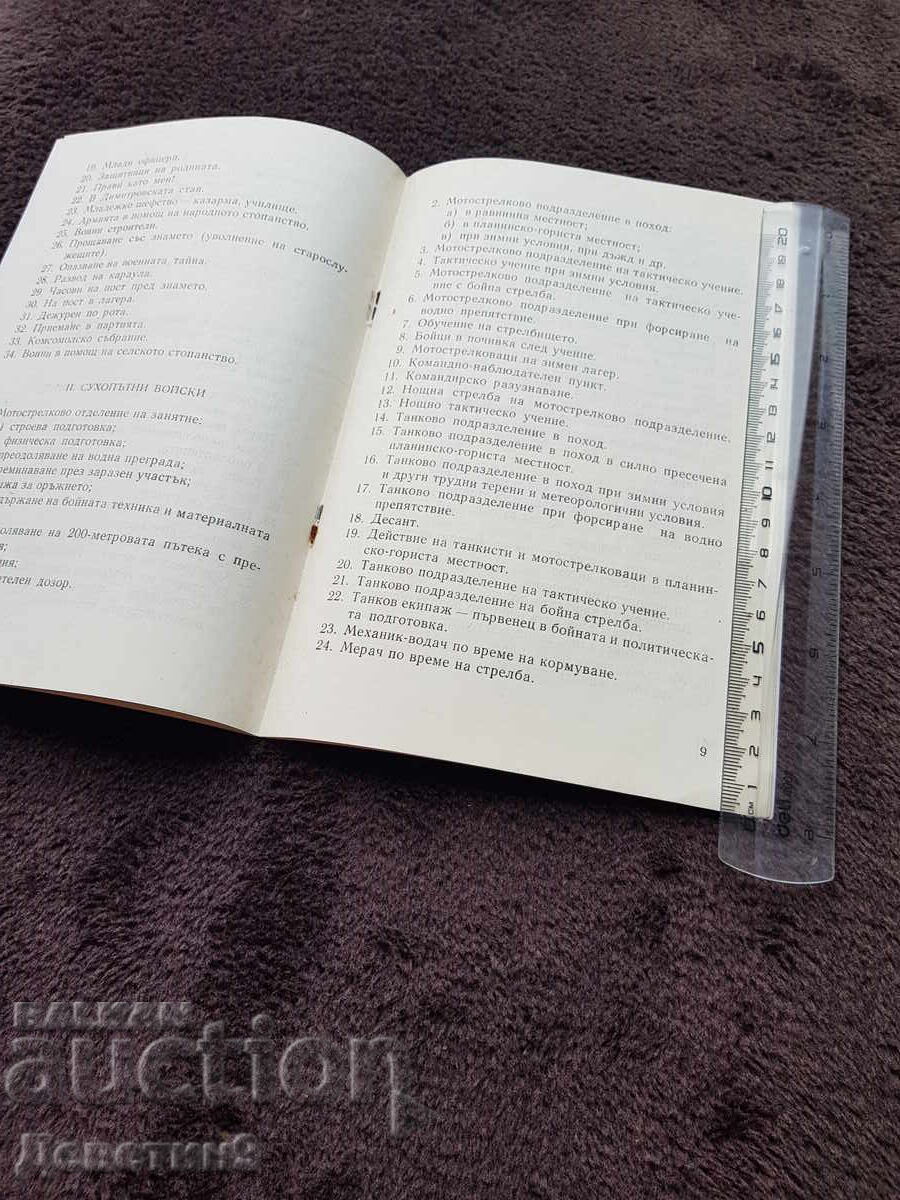 19. Млади офицери.
20. Защитници на родината.
21. Прави като мен!
22. В Димитровската стая.
23. Младежко шефство — казарма, училище.
24. Армията в помощ на народното стопанство.
25. Воини строители.
26. Прощаване със знамето (уволнение на старослу-
жещите).
27. Опазване на военната тайна.
28. Развод на караула.
29. Часови на пост пред знамето.
30. На пост в лагера.
31. Дежурен по рота.
32. Приемане в партията.
33. Комсомолско събрание.
34. Воини в помощ на селското стопанство.
II. СУХОПЪТНИ ВОЙСКИ
Мотострелково отделение на занятие:
) строева подготовка;
физическа подготовка;
преодоляване на водна преграда;
реминаване през заразен участък;
ижа за оръжието;
държане на бойната техника и материалната
одоляване на 200-метровата пътека с пре-
я;
ния;
ителен дозор.
2. Мотострелково подразделение в поход:
а) в равнинна местност;
б) в планинско-гориста местност;
в) при зимни условия, при дъжд и др.
3. Мотострелково подразделение на тактическо учение.
4. Тактическо учение при зимни условия.
5. Мотострелково подразделение на тактическо уче-
ние с бойна стрелба.
6. Мотострелково подразделение при форсиране на
водно препятствие.
7. Обучение на стрелбището.
8. Бойци в почивка след учение.
9. Мотострелковаци на зимен лагер.
10. Командно-наблюдателен пункт.
11. Командирско разузнаване.
12. Нощна стрелба на мотострелково подразделение.
13. Нощно тактическо учение.
14. Танково подразделение в поход.
15. Танково подразделение в поход в силно пресечена
планинско-гориста местност.
16. Танково подразделение в поход при зимни условия
и други трудни терени и метеорологични условия.
17. Танково подразделение при форсиране на водно
препятствие.
18. Десант.
19. Действие на танкисти и мотострелковаци в планин-
ско-гориста местност.
20. Танково подразделение на тактическо учение.
21. Танково подразделение на бойна стрелба.
22. Танков екипаж — първенец в бойната и политическа-
та подготовка.
23. Механик-водач по време на кормуване.
24. Мерач по време на стрелба.
9
BALKAN
auction
Цветин9